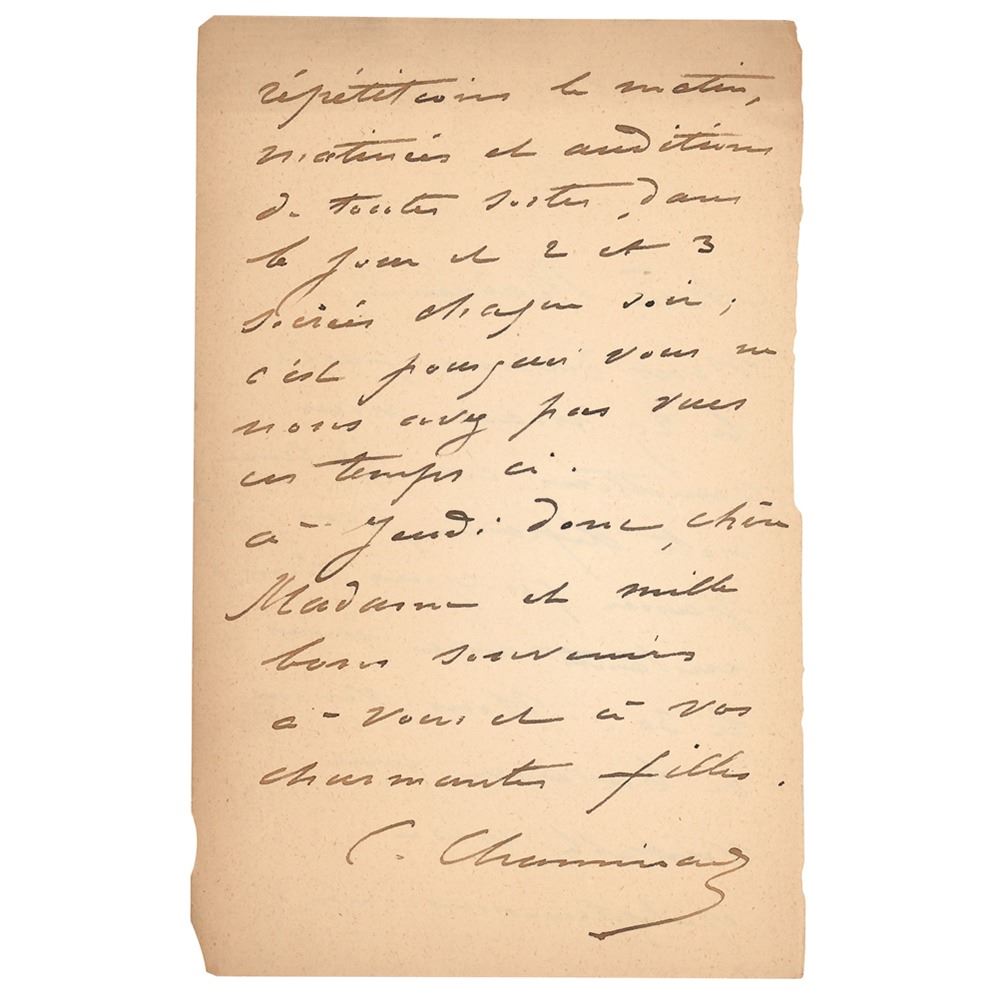 répétitions le matin,
matinées et auditions
de toutes sortes, dans
le jour et 2 et 3
soirées chaque soir ;
c'est pourquoi vous ne
nous avez pas vues
ces temps ci.
à Jeudi donc, chère
Madame et mille
bons souvenirs
à vous et à vos
charmantes filles.
C. Chaminade